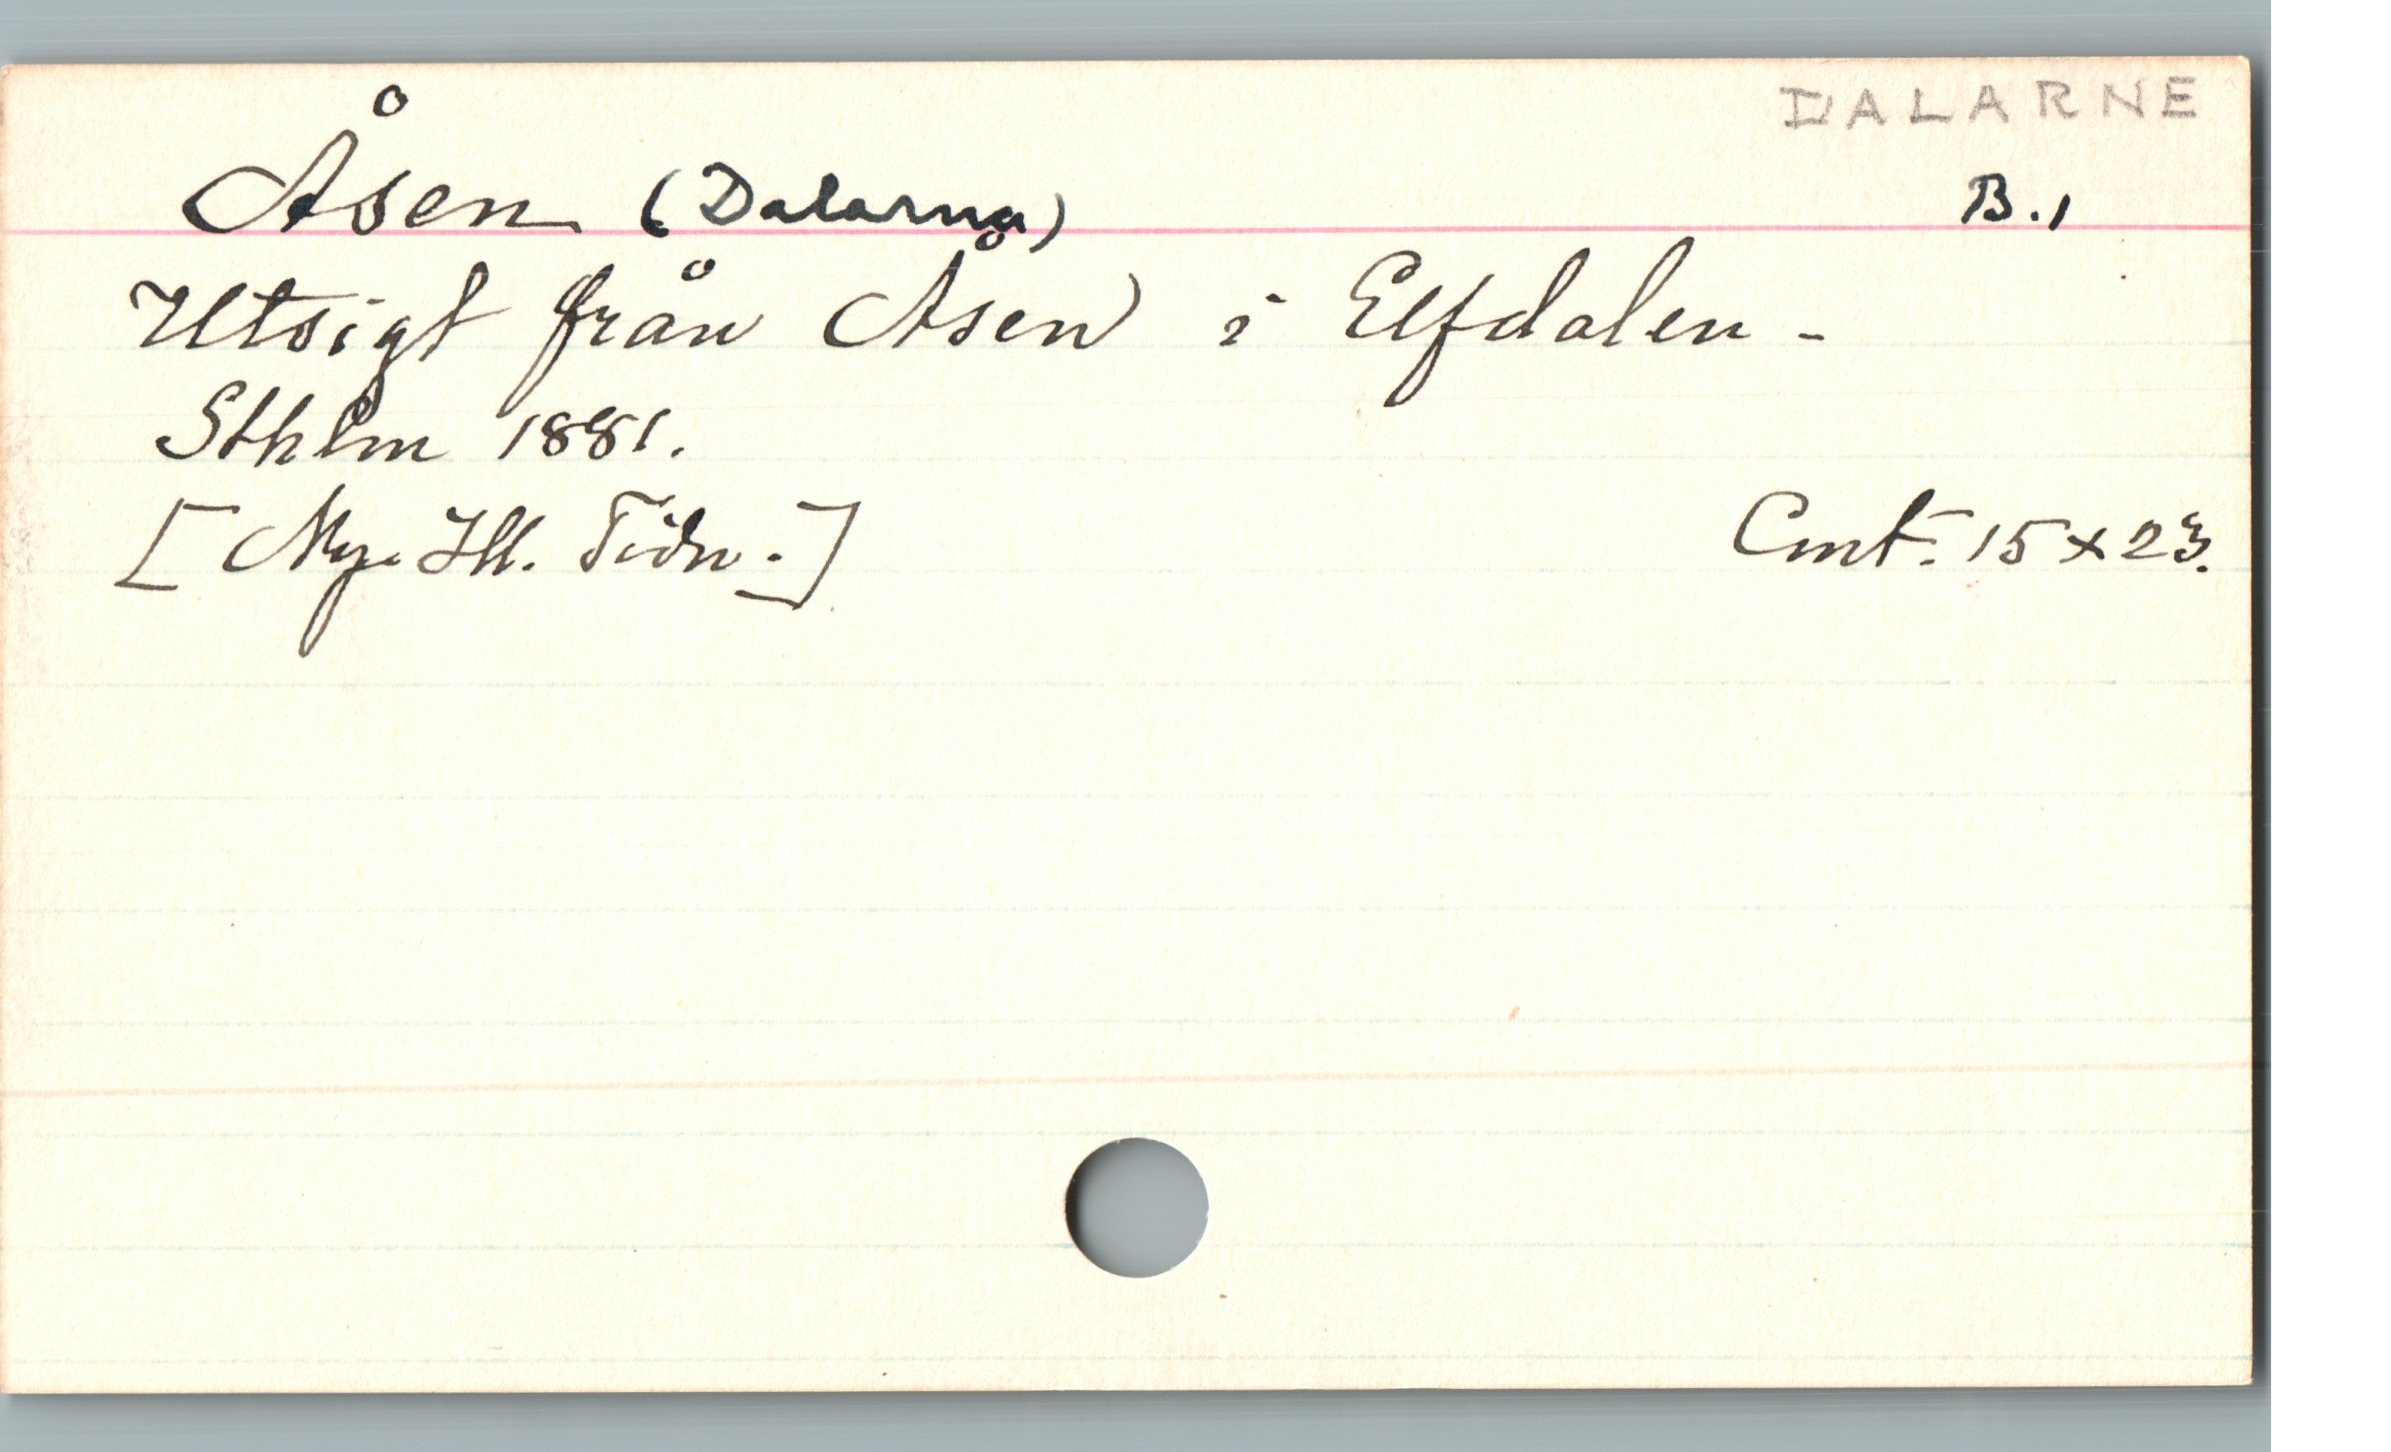 DALARNE
Åsen (Dalarna) B.1
Utsigt från Åsen i Elfdalen -
Sthlm 1881.
[Ny. Ill. Tidn.] Cmt. 15 x 23.